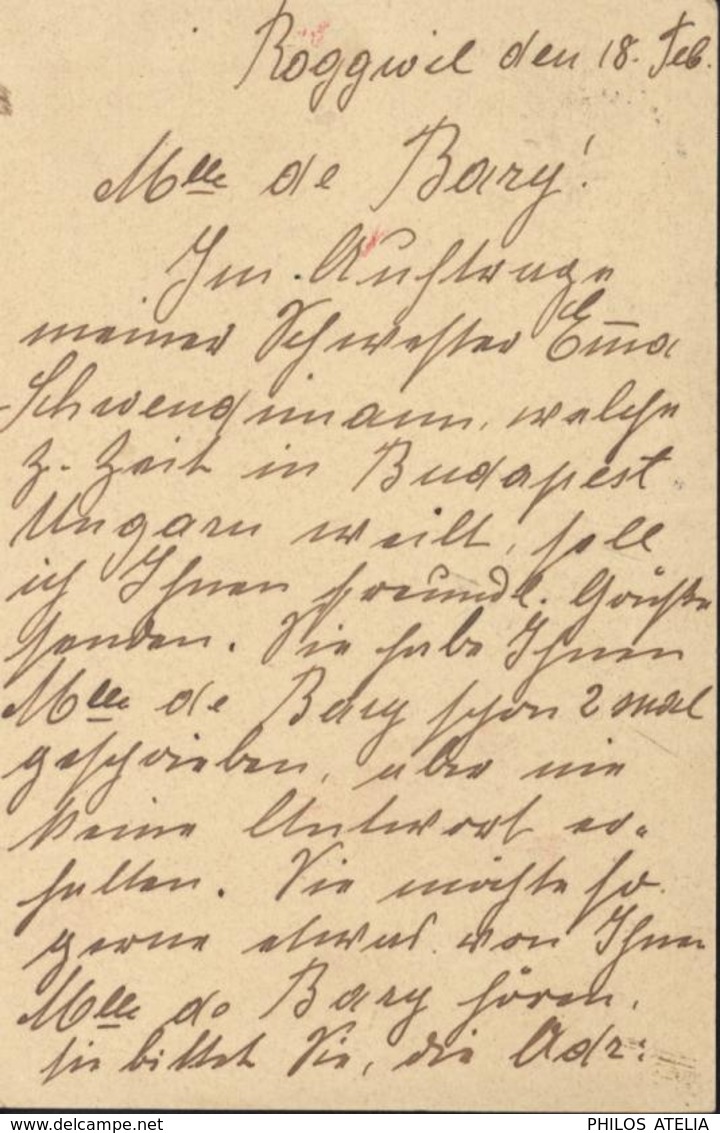 Roggwil den 18. Feb.
Mlle de Bary!
Im Auftrage
meiner Schwester Emma
Schwendimann, welche
z. Zeit in Budapest
Ungarn weilt, soll
ich Ihnen freundl. Grüße
senden. Sie habe Ihnen
Mlle de Bary schon 2 mal
geschrieben, aber nie
keine Antwort er-
halten. Sie möchte so
gerne etwas von Ihnen
Mlle de Bary hören,
sie bittet Sie, die Adr:
www.delcampe.net
PHILOS ATELIA